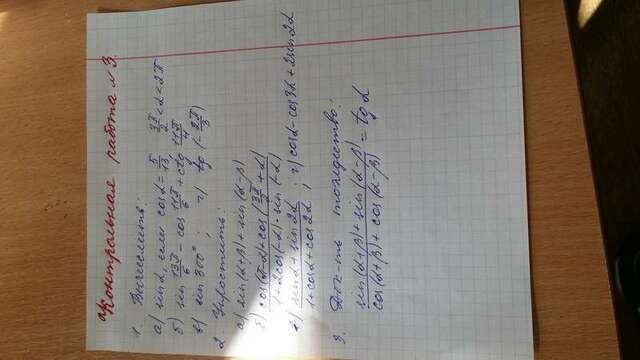 Контрольная работа N 3.
1. Вычислить:
а) sin α, если cos α = 5/13, 3π/2 < α < 2π
б) sin 13π/6 - cos 11π/6 + ctg 11π/4
в) sin 300° ; г) tg (-2π/3)
2. Упростить:
а) sin(α+β) + sin(α-β)
б) cos(π-α) + cos(3π/2 + α) / 1+2cos(-α)·sin(-α)
в) sin α + sin 2α / 1+cos α + cos 2α ; г) cos α - cos 3α + 2 sin 2α
3. Док-ть тождество:
sin(α+β) + sin(α-β) / cos(α+β) + cos(α-β) = tg α